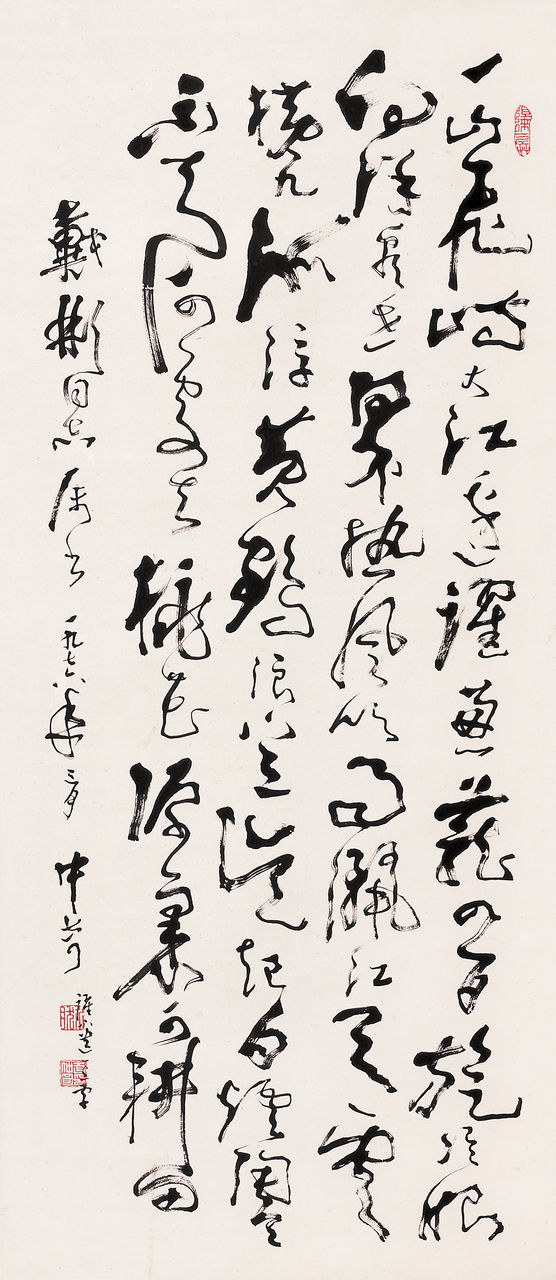 一山飞峙大江边跃上葱茏四百旋冷眼
向洋看世界热风吹雨洒江天云
横九派浮黄鹤浪下三吴起白烟陶令
不知何处去桃花源里可耕田
戴彬同志属书 一九七六年三月